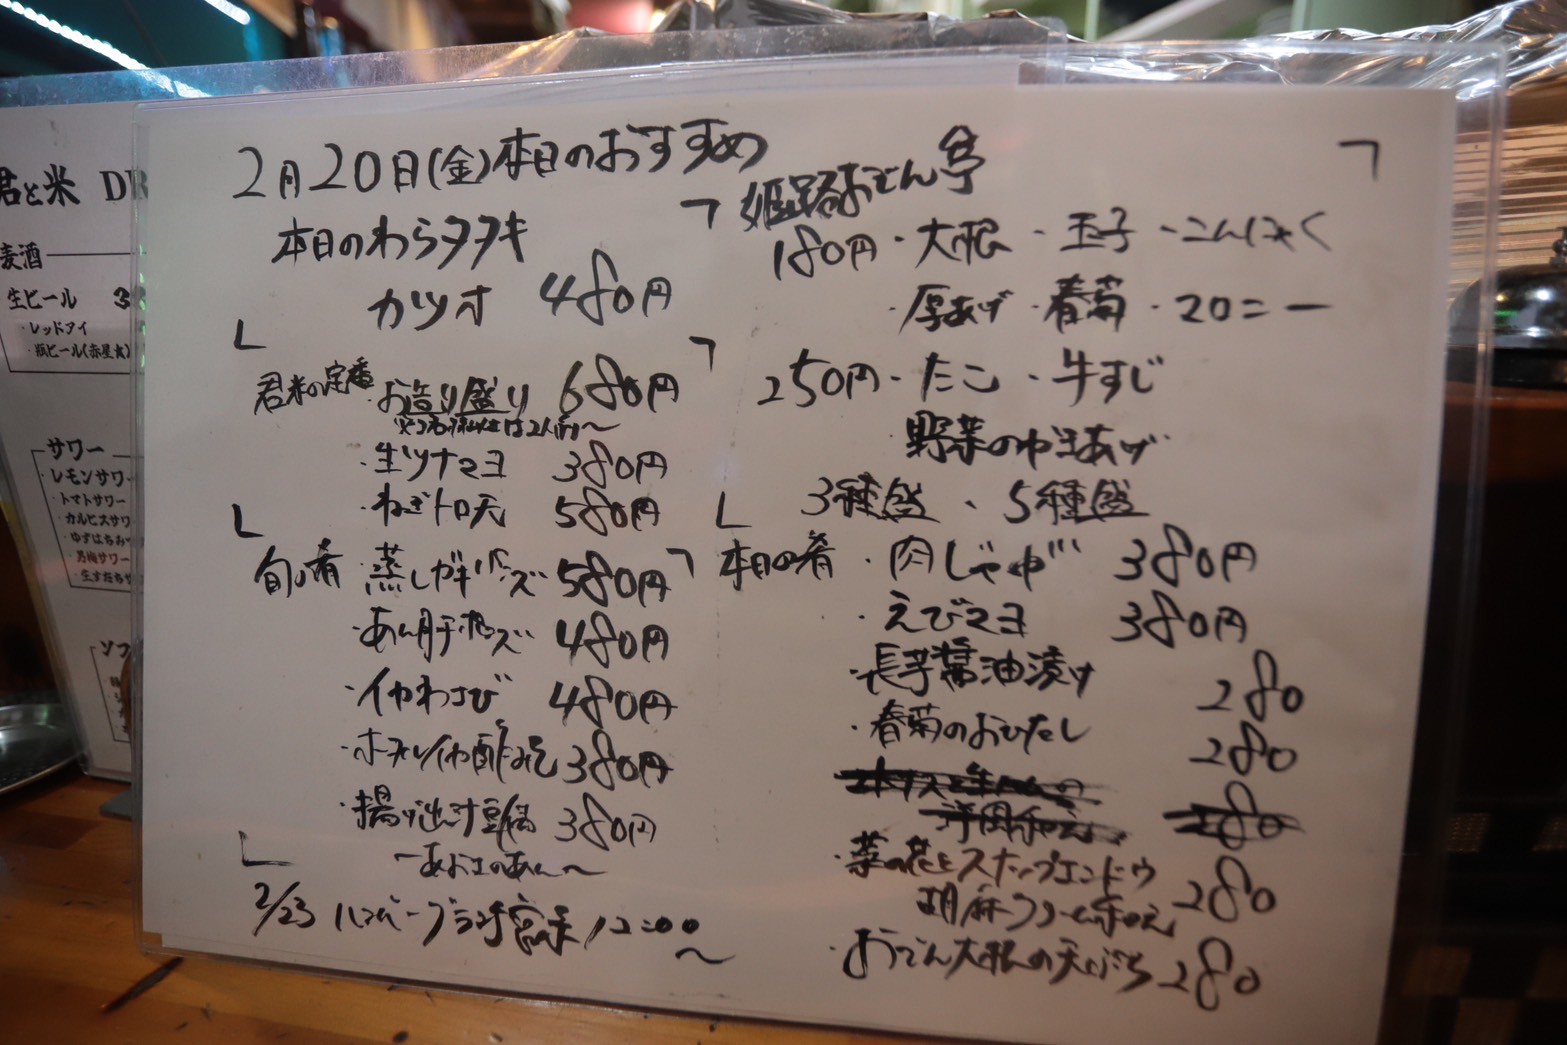 2月20日(金)本日のおすすめ
本日のわらヲヲキ
カツオ 480円
君米の定番 ・お造り盛り 680円
は2人前〜
・生ツナマヨ 380円
・ねぎトロ天 580円
旬の肴 ・蒸しガキポンズ 580円
・あん肝ポンズ 480円
・イカわさび 480円
・ホタルイカ酢みそ 380円
・揚げ出汁豆腐 380円
2/23 ハンバーグランチ営業 12:00〜
姫路おでん亭
180円・大根・玉子・こんにゃく
・厚あげ・春菊・マロニー
250円・たこ・牛すじ
3種盛、5種盛
本日の肴 ・肉じゃが 380円
・えびマヨ 380円
・長芋醤油漬け 280
・春菊のおひたし 280
280
・菜の花とスナップエンドウ
胡麻クリーム和え 280
・おでん大根の天ぷら 280
君と米 DR
麦酒
生ビール
レッドアイ
瓶ビール(赤星大)
サワー
レモンサワー
トマトサワー
カルピスサワ
ゆずはちみつ
男梅サワー
生すだちサ
ソフ